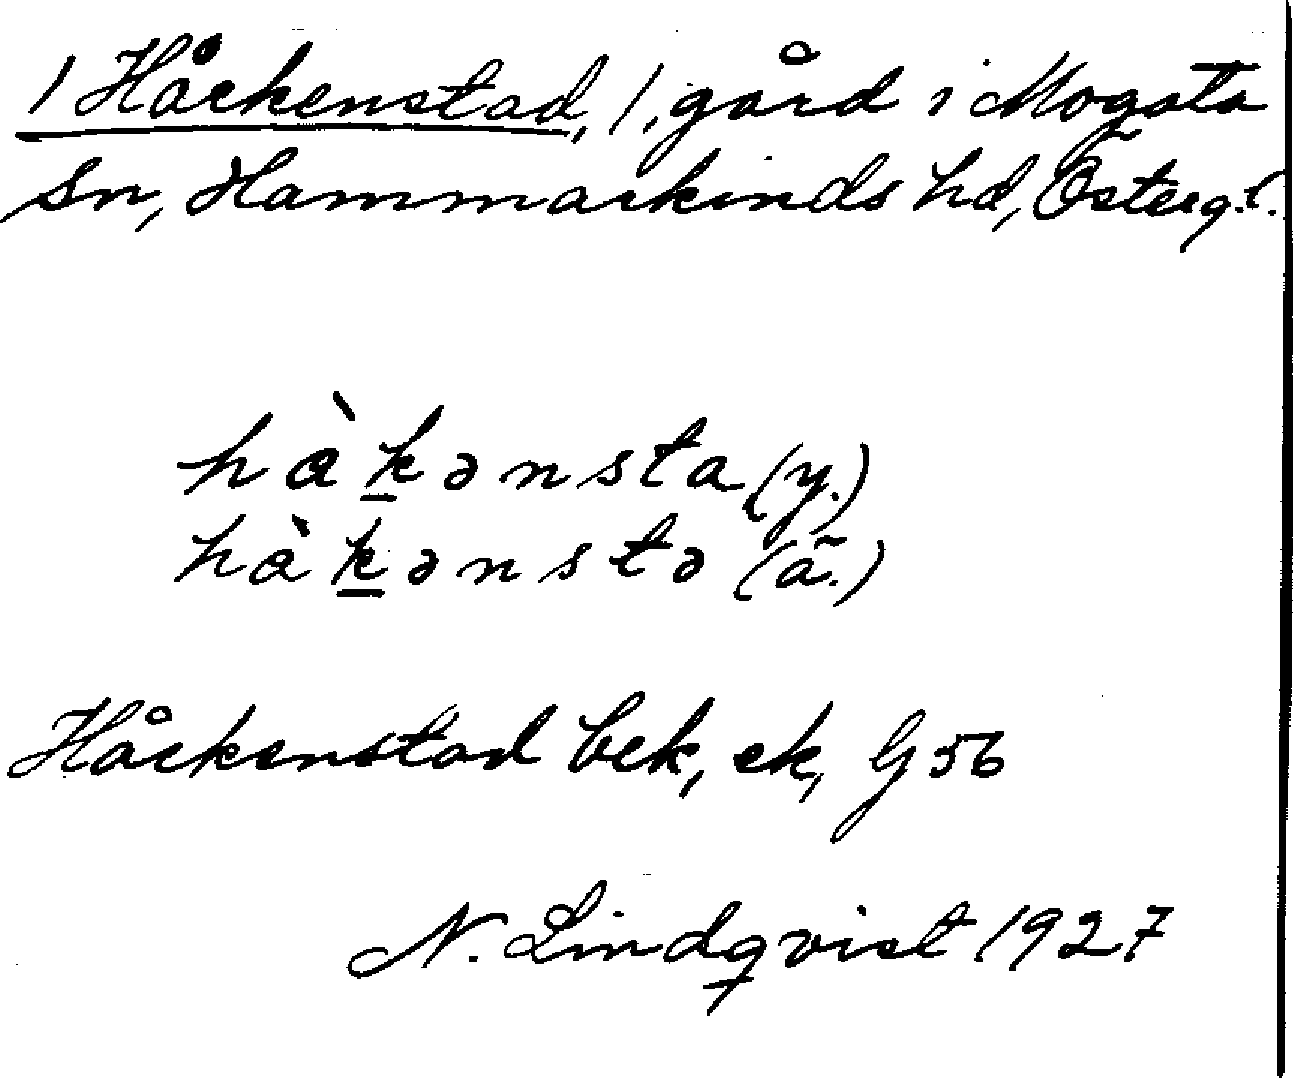 1 Håckenstad, 1, gård i Mogata
Sn, Hammarkinds hd, Österg.l.
hàkənsta (y.)
hàkənstə (ä.)
Håckenstad bek, ek, G 56
N. Lindqvist 1927